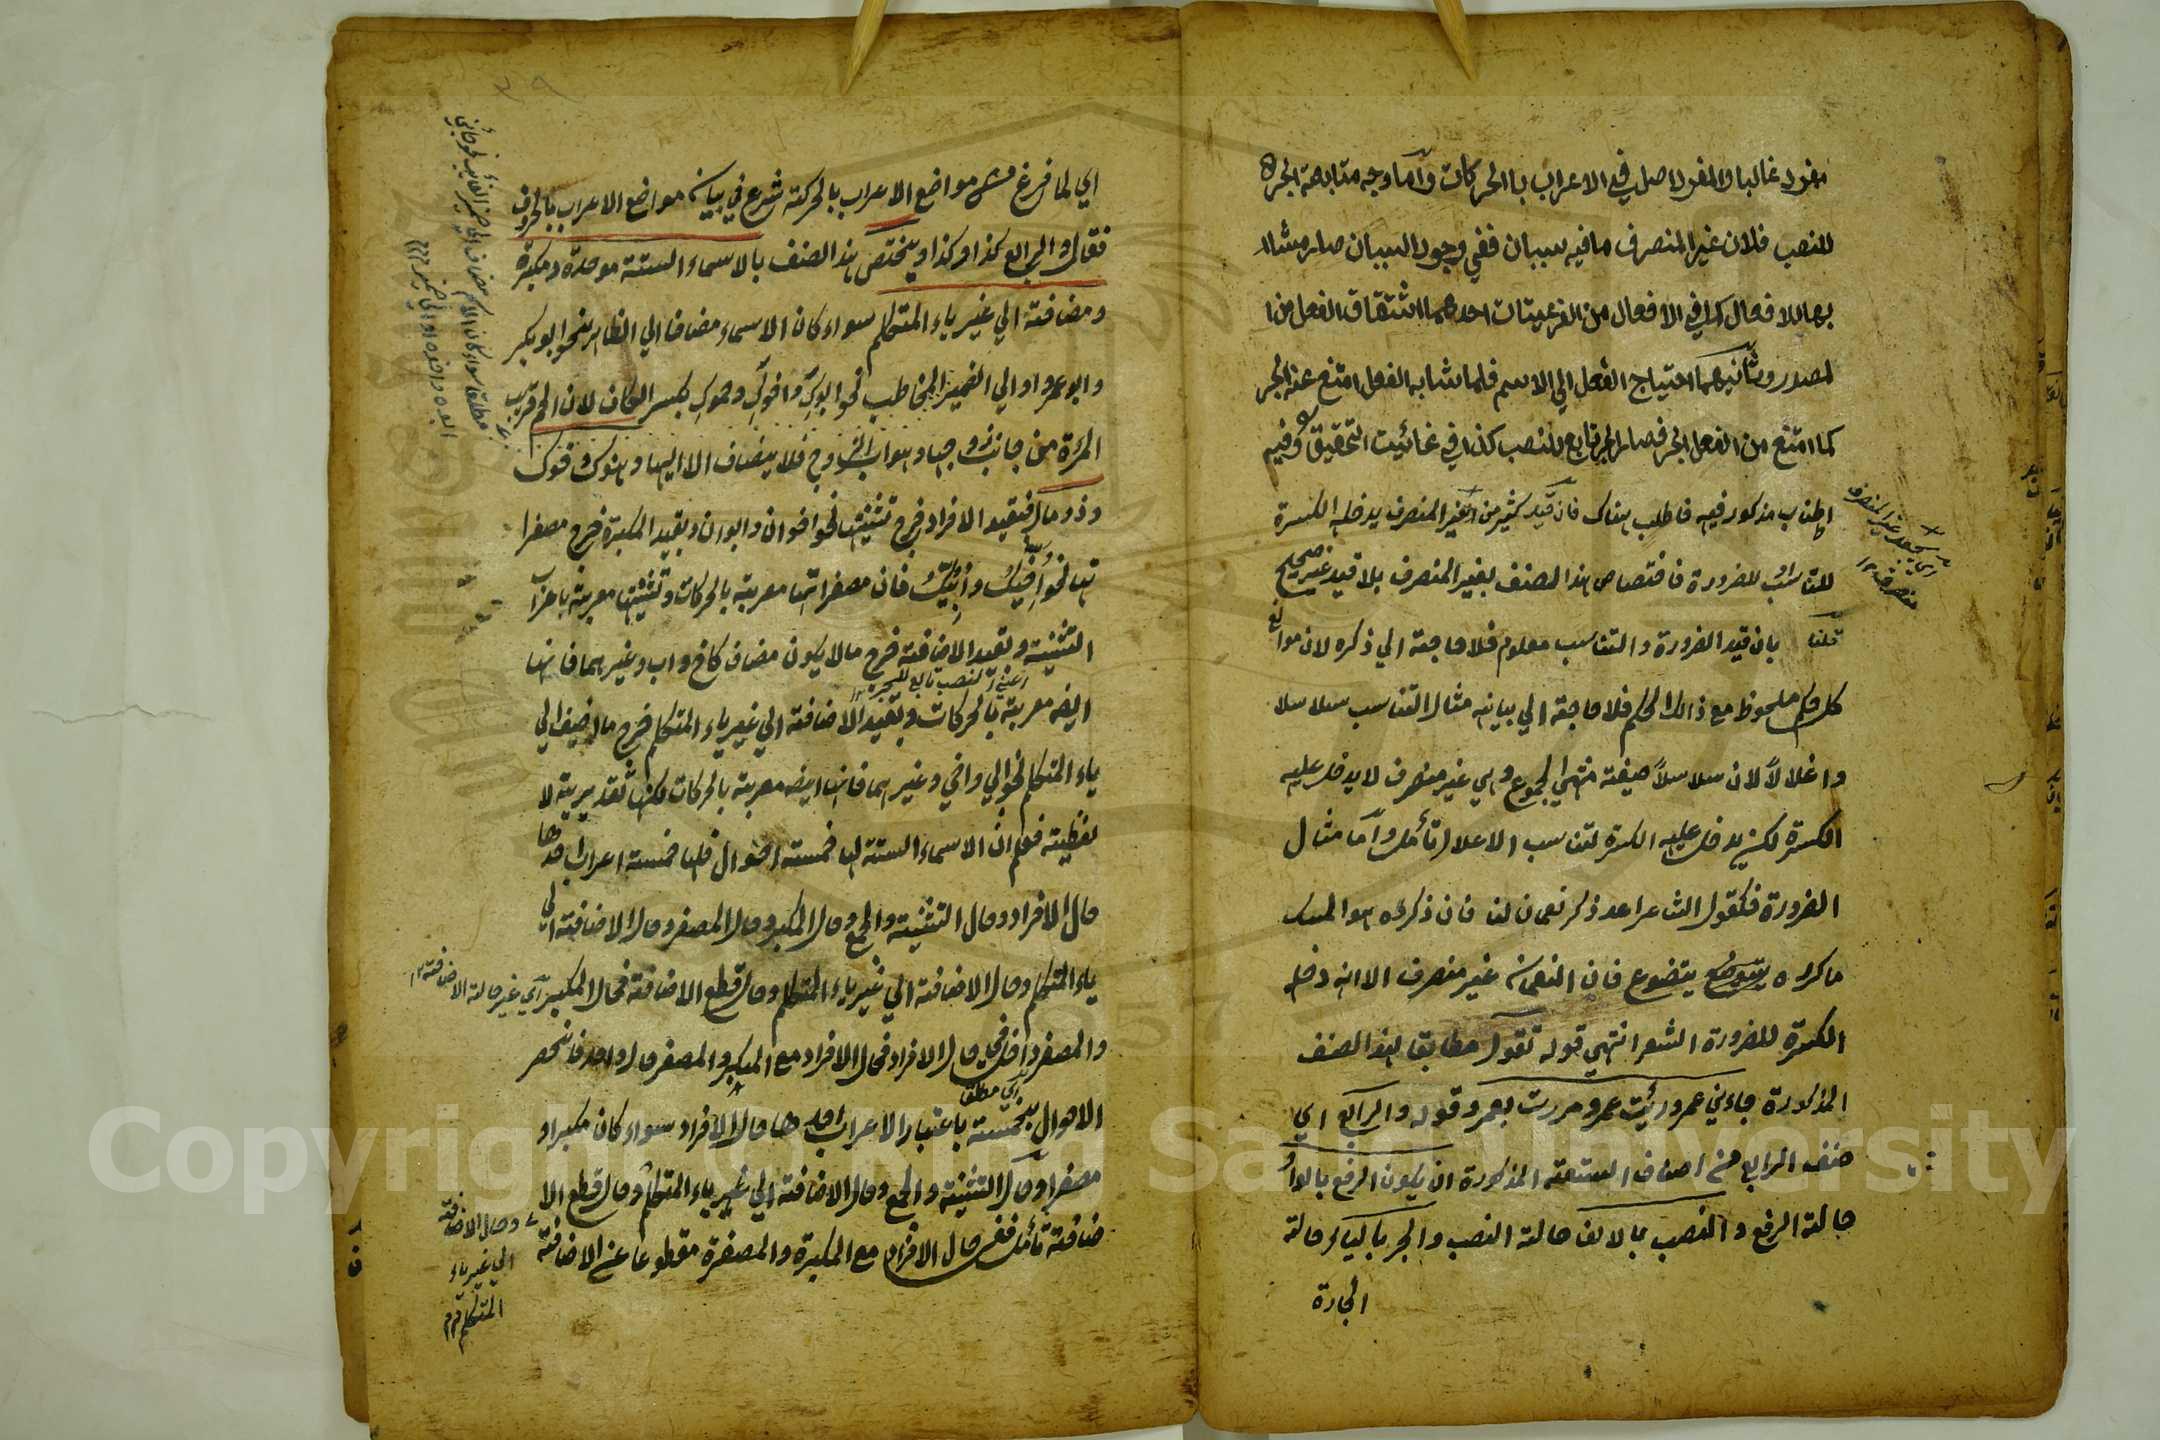 مفرد غالبا والمفرد اصل في الاعراب بالحركات واما وجه متابعة الجر
للنصب فلان غير المنصرف ما فيه سببان ففي وجود السببان صار مشا
بها للافعال كما في الافعال من الفرعيتان احدهما اشتقاق الفعل من ا
لمصدر وثانيهما احتياج الفعل الي الاسم فلما شابه الفعل امتنع عنه الجر
كما امتنع من الفعل الجر فصار الجر تابع للنصب كذا في غائيت التحقيق وفيه
اطناب مذكور فيه فاطلب هناك فان قيل كثير من غير المنصرف يدخله الكسرة
للتناسب للضرورة فاختصاص هذا الصنف بغير المنصرف بلا قيد غير صحيح
قلنا بان قيد الضرورة والتناسب معلوم فلا حاجة الي ذكره لان موانع
كل حكم ملحوظ مع ذالك الحكم فلا حاجة الي بيانه مثال التناسب سلاسلا
واغلالا لان سلاسلا صيغة منتهي الجموع وهي غير منصرف لا يدخل عليه
الكسرة لكن يدخل عليه الكسرة لتناسب الاعلال تأمل واما مثال
الضرورة فكقول الشاعر اعد ذكر نعمان لنا فان ذكره هو المسك
ما كرره يتضوع فان النعمان غير منصرف الا انه دخل
الكسرة للضرورة الشعر انتهي قوله تقول مطابقا لهذا الصنف
المذكورة جاءني عمر ورئيت عمر ومررت بعمر وقوله والرابع اي
صنف الرابع من اصناف التسعة المذكورة ان يكون الرفع بالواو
حالة الرفع والنصب بالالف حالة النصب والجر بالياء حالة
الجارة
اي يجعل غير المنصرف
منصرف ١٢
اي لما فرغ من مواضع الاعراب بالحركة شرع في بيان مواضع الاعراب بالحروف
فقال والرابع كذا وكذا ويختص هذا الصنف بالاسماء الستة موحدة ومكبرة
ومضافة الي غير ياء المتكلم سواء كان الاسماء مضاف الي الظاهر نحو ابو بكر
وابو عمرو او الي الضمير المخاطب نحو ابوك واخوك وحموك بكسر الكاف لان الحم قريب
المرءة من جانب زوجها وهو اب الزوج فلا يضاف الا اليها وهنوك وفوك
وذو مال فبقيد الافراد خرج تثنيتها نحو اخوان وابوان وبقيد المكبرة خرج مصغرا
تها نحو اخيك وابيك فان مصغراتها معربة بالحركات وتثنيتها معربة باعراب
التثنية وبقيد الاضافة خرج مالا يكون مضاف كاخ واب وغيرهما فانها
اعني النصب تابع للجر ١٢
ايضه معربة بالحركات وبقيد الاضافة الي غير ياء المتكلم خرج ما اضيف الي
ياء المتكلم نحو ابي واخي وغيرهما فانها ايضه معربة بالحركات لكنها تقديرية لا
لفظية فعلم ان الاسماء الستة لها خمسة احوال فلها خمسة اعراب احدها
حال الافراد وحال التثنية والجمع وحال المكبر وحال المصغر وحال الاضافة الي
ياء المتكلم وحال الاضافة الي غير ياء المتكلم وحال قطع الاضافة فحال المكبر اي غير حالة الاضافة ١٢
والمصغر داخل في حال الافراد فحال الافراد مع المكبر والمصغر حال واحد فانحصر
اي مطلقا
الاحوال بخمسة باعتبار الاعراب احدها حال الافراد سواء كان مكبر او
مصغرا وحال التثنية والجمع وحال الاضافة الي غير ياء المتكلم وحال قطع الا
ضافة تأمل ففي حال الافراد مع المكبرة والمصغرة مقطوعا عن الاضافة
وحال الاضافة
الي غير ياء
المتكلم